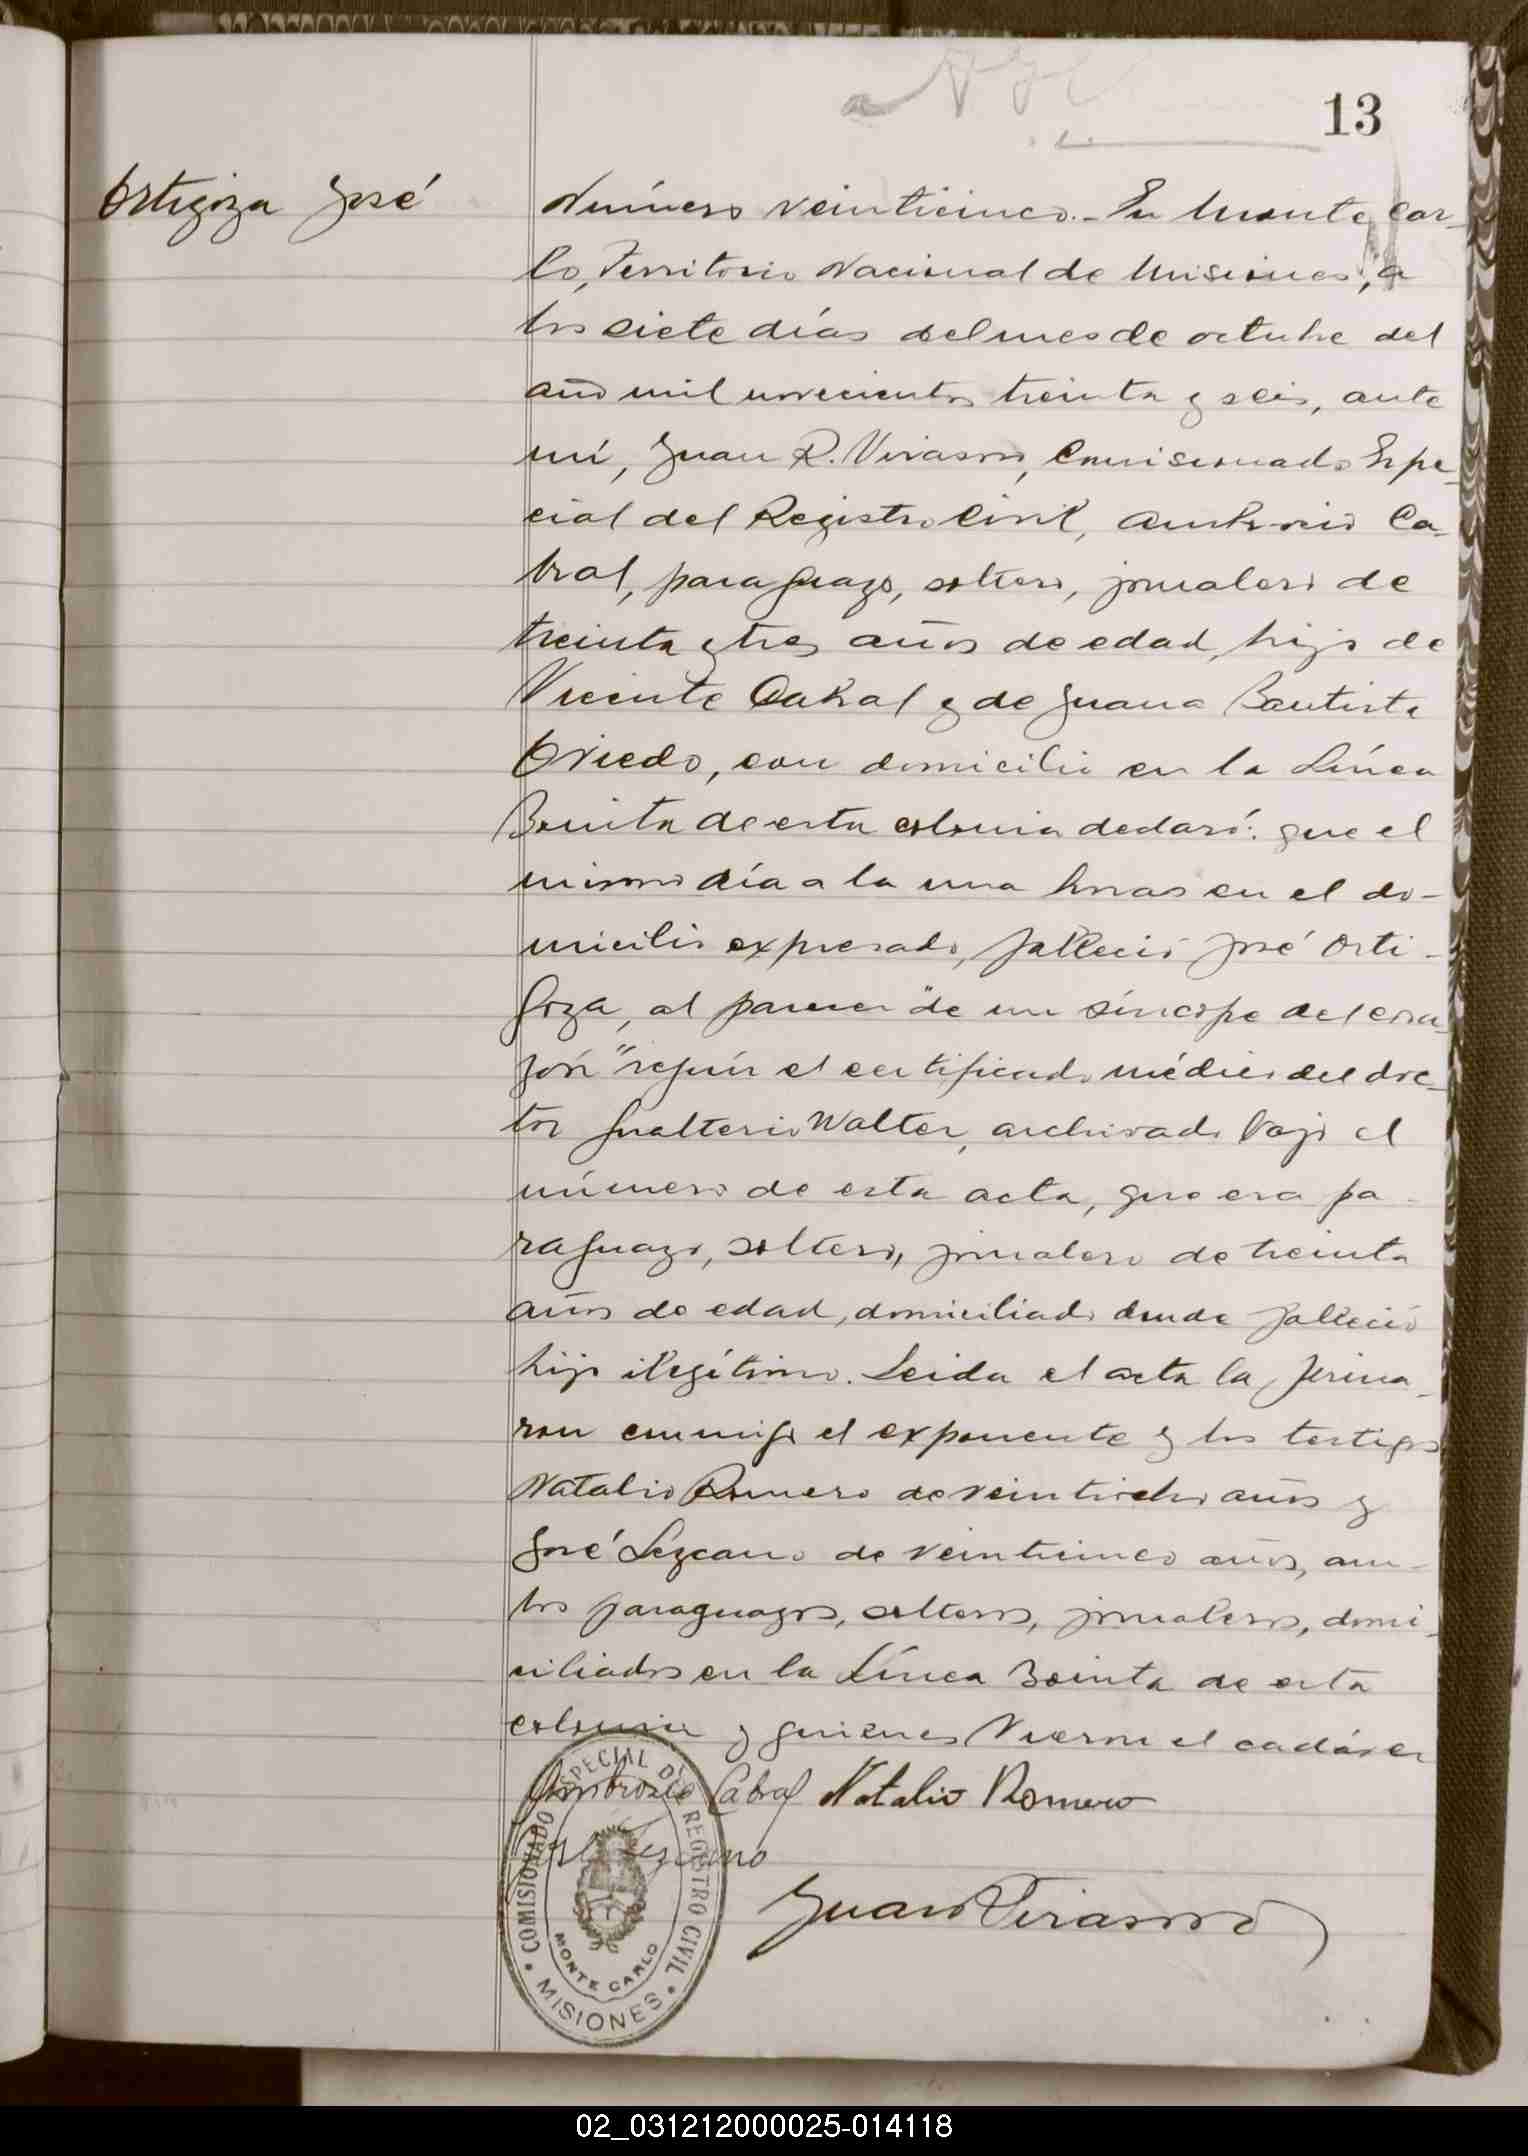 13
Ortigoza José
Número veinticinco.- En Monte Car-
lo, Territorio Nacional de Misiones, a
los siete días del mes de octubre del
año mil novecientos treinta y seis, ante
mí, Juan R. Virasoro, Comisionado Espe-
cial del Registro Civil, Ambrosio Ca-
bral, paraguayo, soltero, jornalero de
treinta y tres años de edad, hijo de
Vicente Cabral y de Juana Bautista
Oviedo, con domicilio en la Línea
Bonita de esta colonia declaró: que el
mismo día a la una horas en el do-
micilio expresado, falleció José Orti-
goza, al parecer "de un síncope del cora-
zón" según el certificado médico del doc-
tor Gualterio Walter, archivado bajo el
número de esta acta, que era pa-
raguayo, soltero, jornalero de treinta
años de edad, domiciliado donde falleció
hijo ilegítimo. Leida el acta la firma-
ron conmigo el exponente y los testigos
Natalio Romero de veintiocho años y
José Lezcano de veinticinco años, am-
bos paraguayos, solteros, jornaleros, domi-
ciliados en la Línea Bonita de esta
colonia y quienes vieron el cadáver
Ambrosio Cabral Natalio Romero
José Lezcano
Juan Virasoro
COMISIONADO ESPECIAL DEL REGISTRO CIVIL
MONTE CARLO
• MISIONES •
02_031212000025-014118